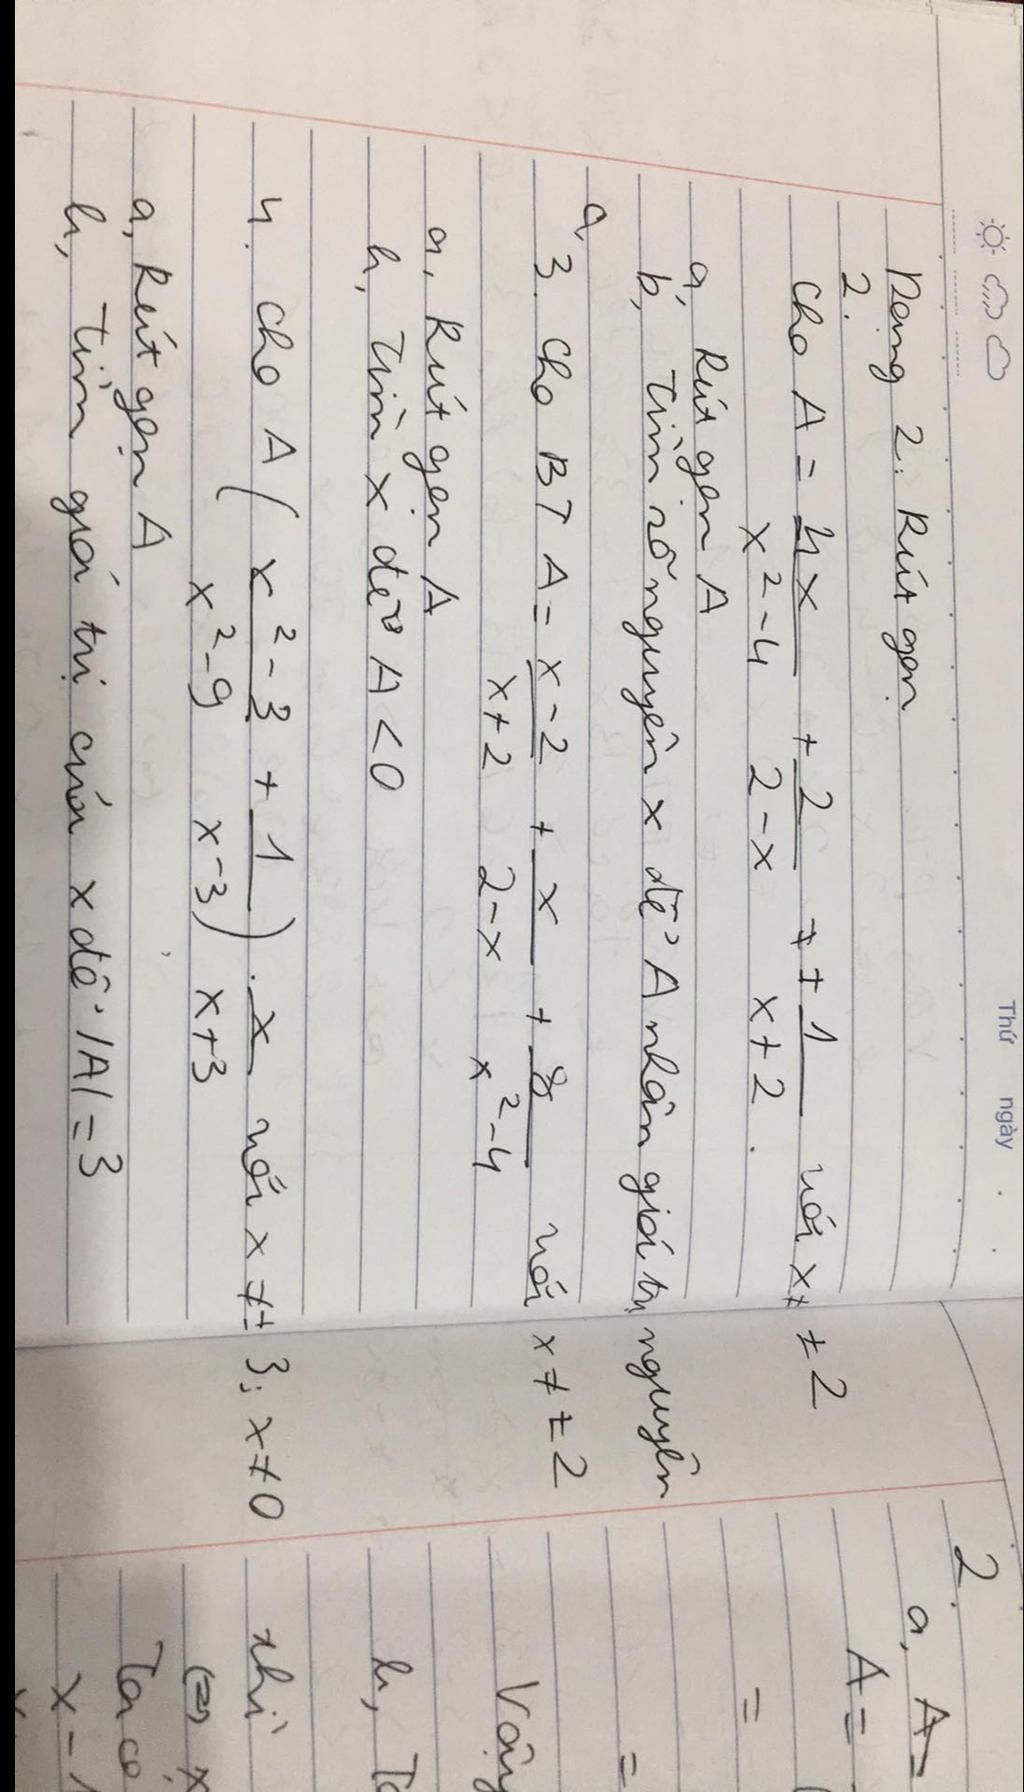 Thứ ngày
Dạng 2: Rút gọn
2.
Cho A = 4x/(x²-4) + 2/(2-x) + 1/(x+2) với x ≠ ±2
a, Rút gọn A
b, Tìm số nguyên x để A nhận giá trị nguyên
a,
3. Cho BT A = (x-2)/(x+2) + x/(2-x) + 8/(x²-4) với x ≠ ±2
a, Rút gọn A
b, Tìm x để A < 0
4. Cho A ((x²-3)/(x²-9) + 1/(x-3)) . x/(x+3) với x ≠ ±3; x ≠ 0
a, Rút gọn A
b, Tìm giá trị của x để |A| = 3
2.
a, A =
A =
=
=
Vậy
b, Ta
thì
⇔ x
Ta có
x - 1